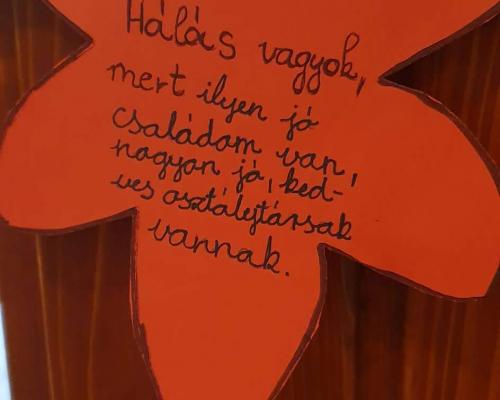 Hálás vagyok,
mert ilyen jó
családom van,
nagyon jó, ked-
ves osztálytársak
vannak.